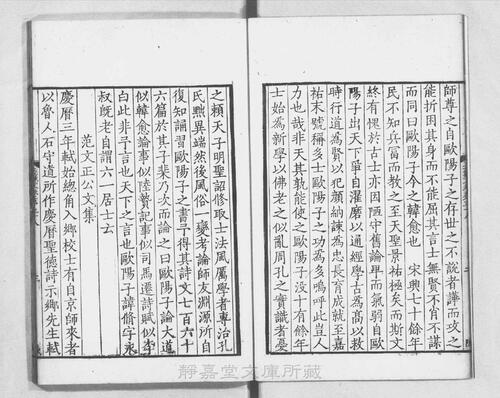 師尊之自歐陽子之存世之不説者譁而攻之
能折困其身而不能屈其言士無賢不肖不謀
而同曰歐陽子今之韓愈也　宋興七十餘年
民不知兵冨而教之至天聖景祐極矣而斯文
終有愧於古士亦因陋守舊論卑而氣弱自歐
陽子出天下爭自濯磨以通經學古為髙以救
時行道為賢以犯顔納諫為忠長育成就至嘉
祐末號稱多士歐陽子之功為多嗚呼此豈人
力也哉非天其孰能使之歐陽子没十有餘年
士始為新學以佛老之似亂周孔之實識者憂
之頼天子明聖詔修取士法風厲學者專治孔
氏黜異端然後風俗一變考論師友淵源所自
復知誦習歐陽子之書予得其詩文七百六十
六篇於其子棐乃次而論之曰歐陽子論大道
似韓愈論事似陸贄記事似司馬遷詩賦似李
白此非予言也天下之言也歐陽子諱脩字永
叔旣老自謂六一居士云
范文正公文集
慶曆三年軾始總角入鄉校士有自京師來者
以魯人石守道所作慶曆聖德詩示鄉先生軾
靜嘉堂文庫所藏